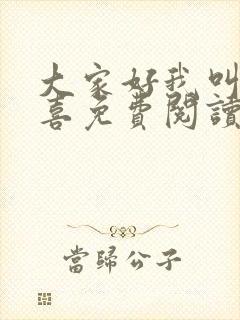 大家好我叫
喜免費閱讀
當歸公子